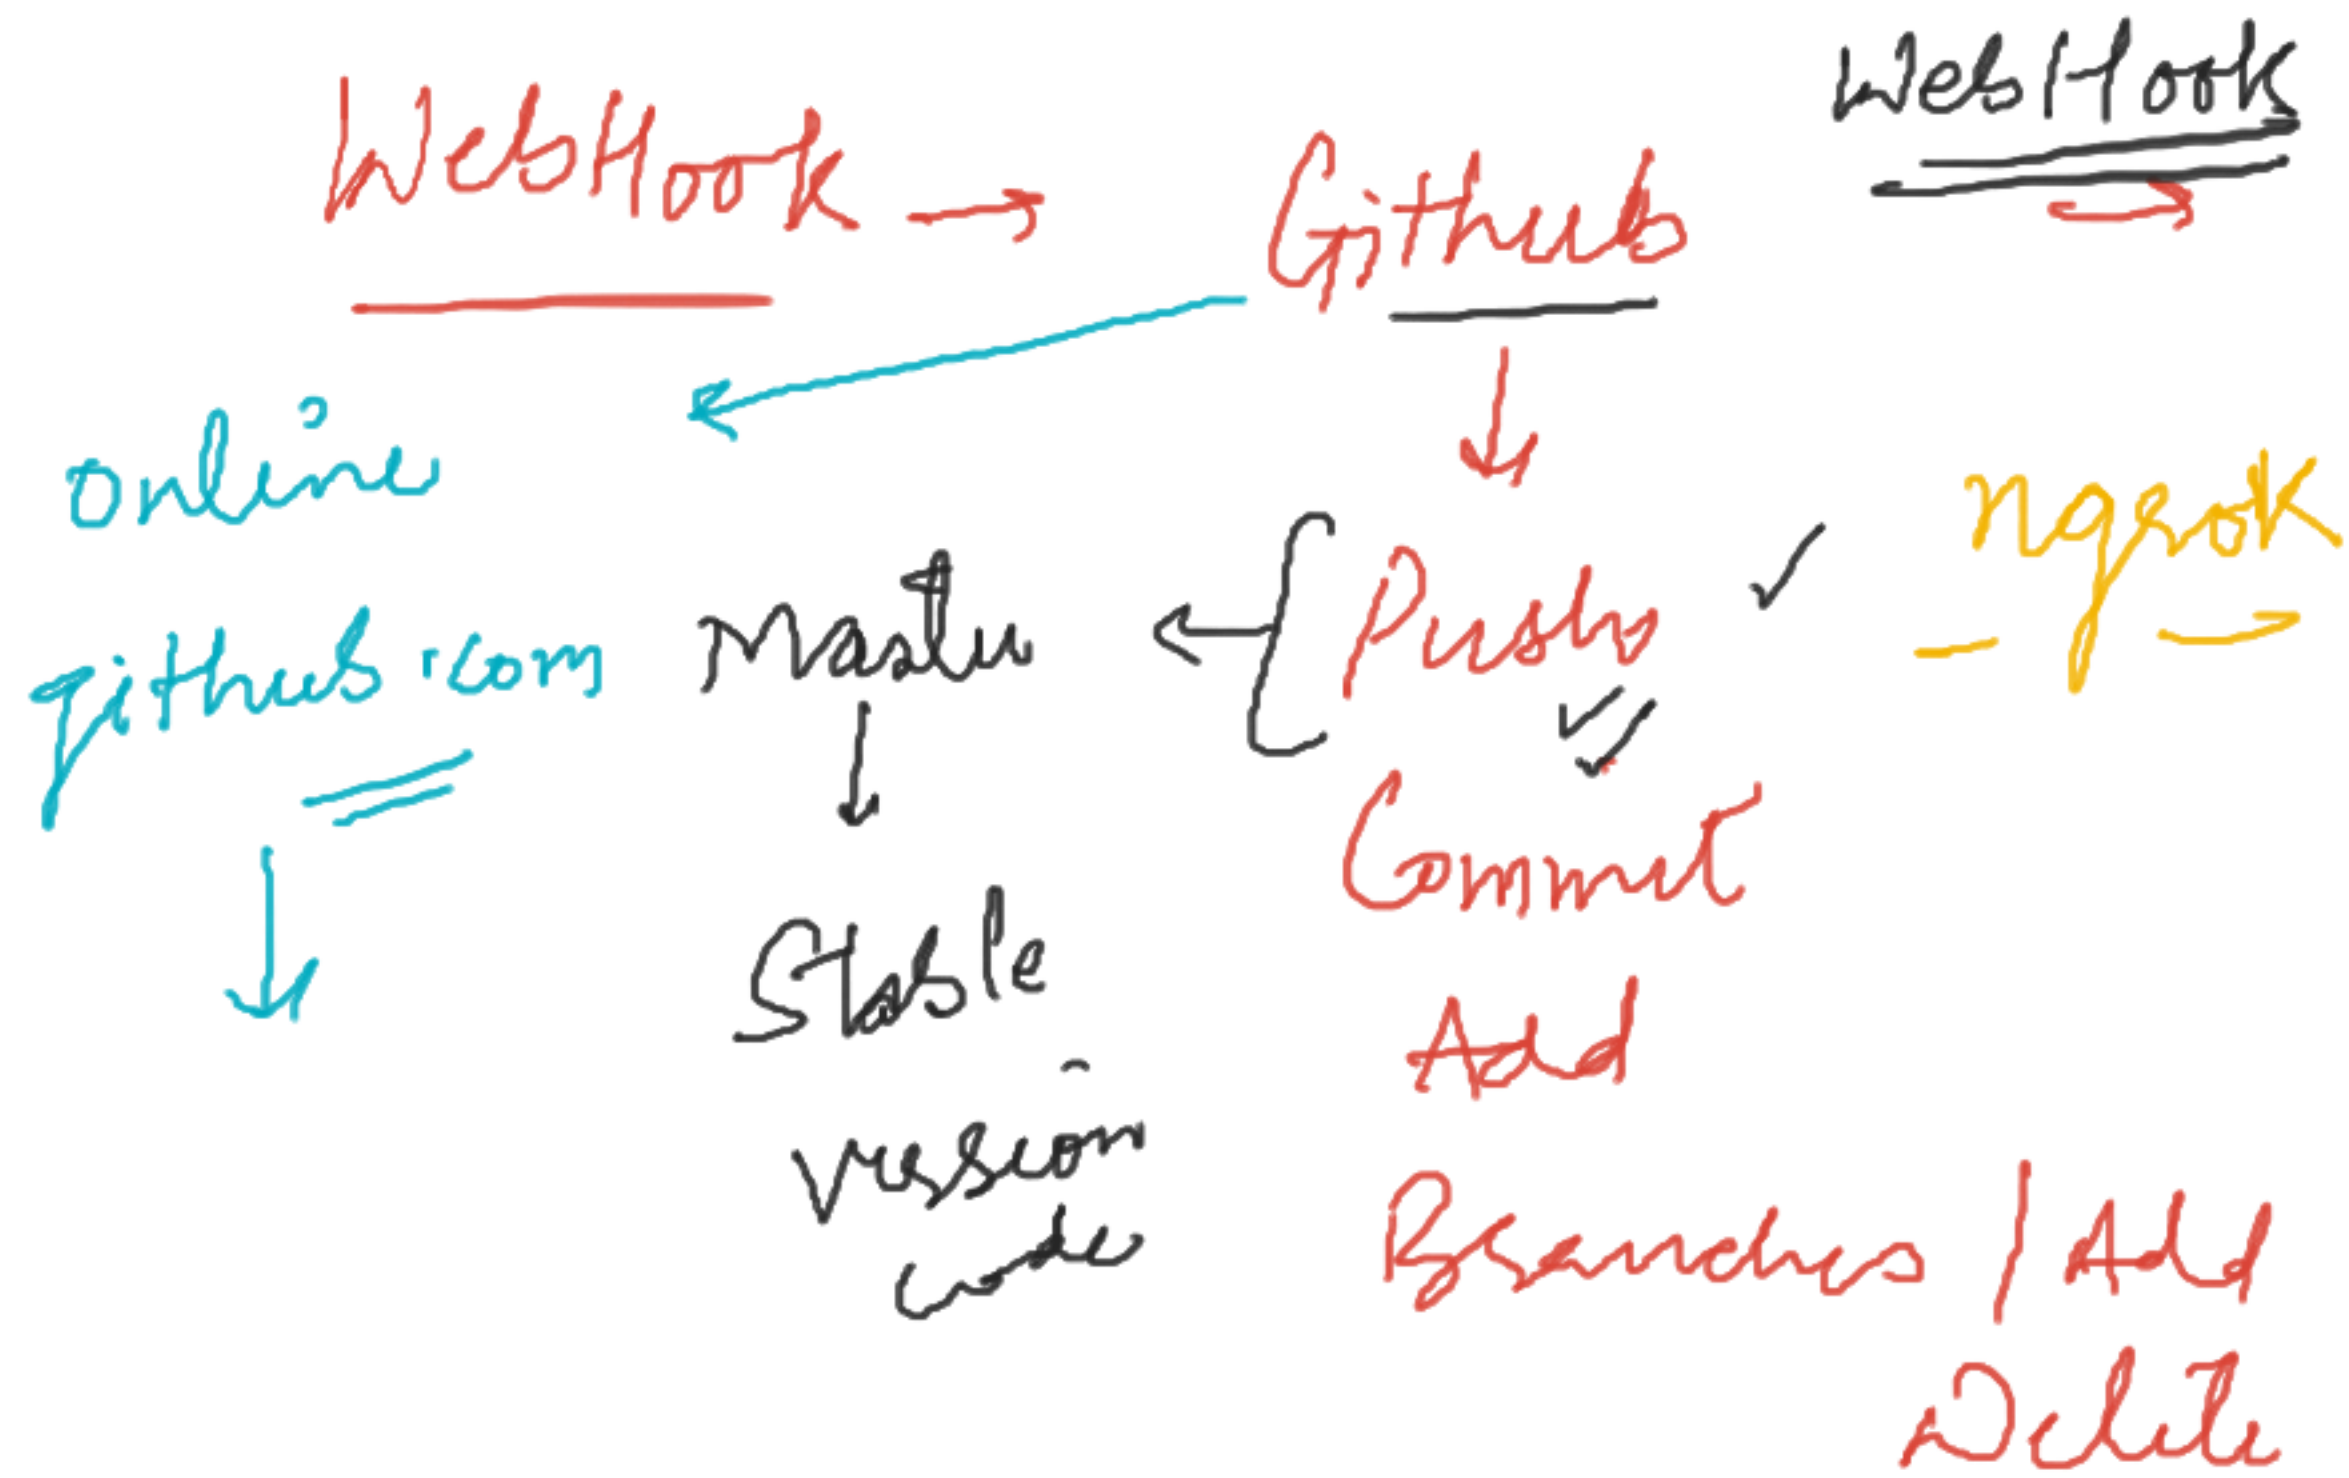 WebHook → Github
WebHook
online
github.com
Master
Stable
version
code
Push
Commit
Add
Branches / Add
Delete
ngrok